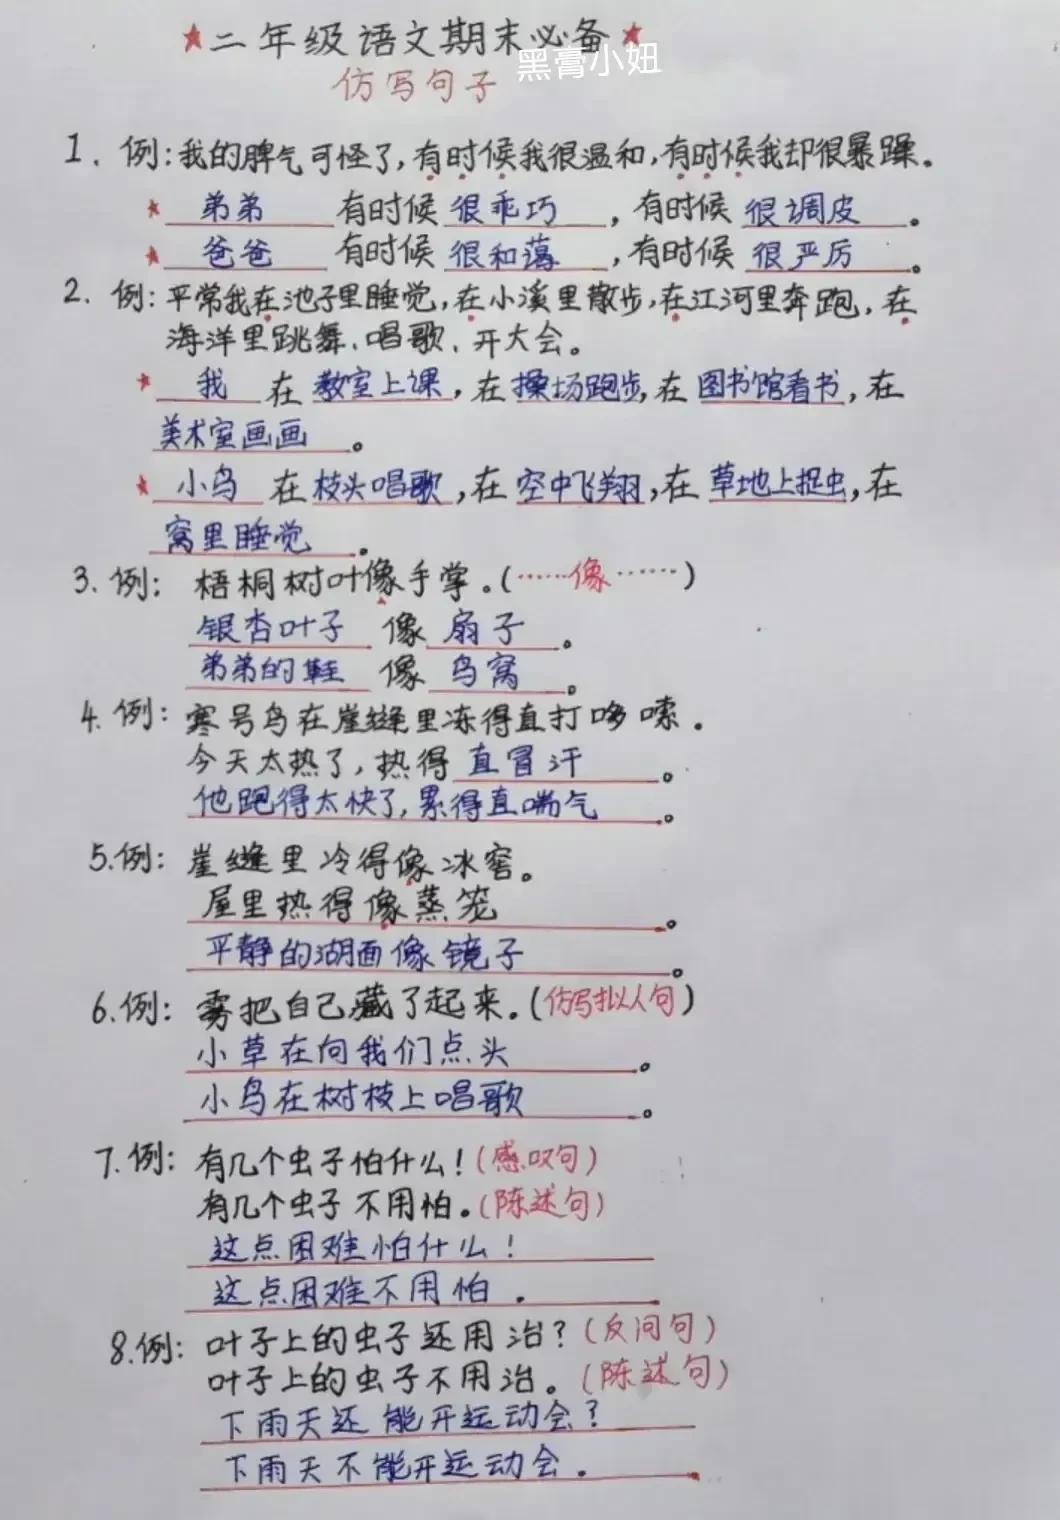 ★二年级语文期末必备★
黑膏小妞
仿写句子
1. 例:我的脾气可怪了,有时候我很温和,有时候我却很暴躁。
★ 弟弟 有时候 很乖巧 ,有时候 很调皮 。
★ 爸爸 有时候 很和蔼 ,有时候 很严厉 。
2. 例:平常我在池子里睡觉,在小溪里散步,在江河里奔跑,在
海洋里跳舞、唱歌、开大会。
★ 我 在 教室上课,在 操场跑步,在 图书馆看书,在
美术室画画 。
★ 小鸟 在 枝头唱歌,在 空中飞翔,在 草地上捉虫,在
窝里睡觉 。
3. 例: 梧桐树叶像手掌。(……像……)
银杏叶子 像 扇子 。
弟弟的鞋 像 鸟窝 。
4. 例: 寒号鸟在崖缝里冻得直打哆嗦.
今天太热了,热得 直冒汗 。
他跑得太快了,累得直喘气 。
5.例: 崖缝里冷得像冰窖。
屋里热得像蒸笼 。
平静的湖面像镜子 。
6.例: 雾把自己藏了起来。(仿写拟人句)
小草在向我们点头 。
小鸟在树枝上唱歌 。
7.例: 有几个虫子怕什么!(感叹句)
有几个虫子不用怕。(陈述句)
这点困难怕什么!
这点困难不用怕.
8.例: 叶子上的虫子还用治?(反问句)
叶子上的虫子不用治。(陈述句)
下雨天还能开运动会?
下雨天不能开运动会.